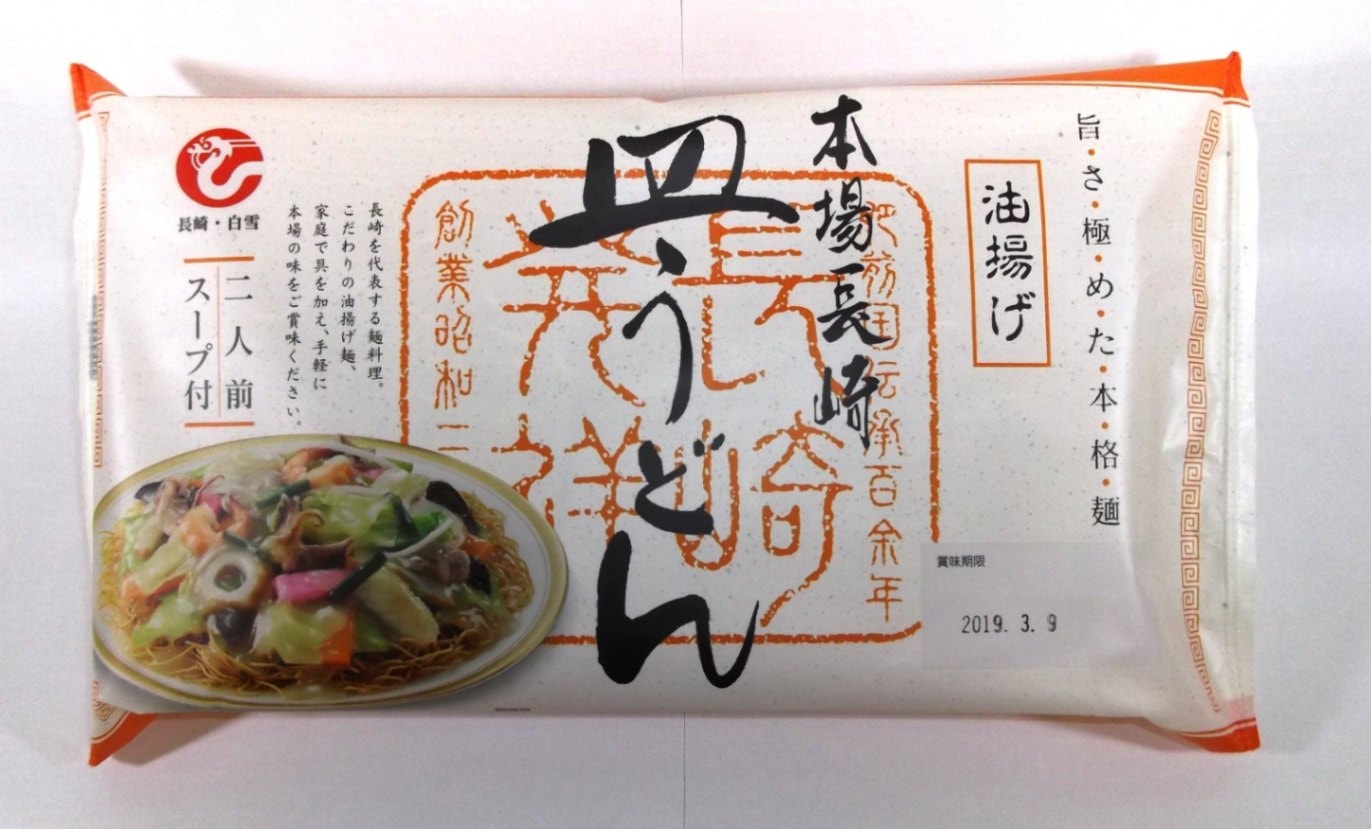 旨・さ・極・め・た・本・格・麺
油揚げ
本場長崎
皿うどん
肥前国伝承百余年
長崎
発祥
創業昭和二
長崎を代表する麺料理。
こだわりの油揚げ麺、
家庭で具を加え、手軽に
本場の味をご賞味ください。
長崎・白雪
二人前
スープ付
賞味期限
2019. 3. 9